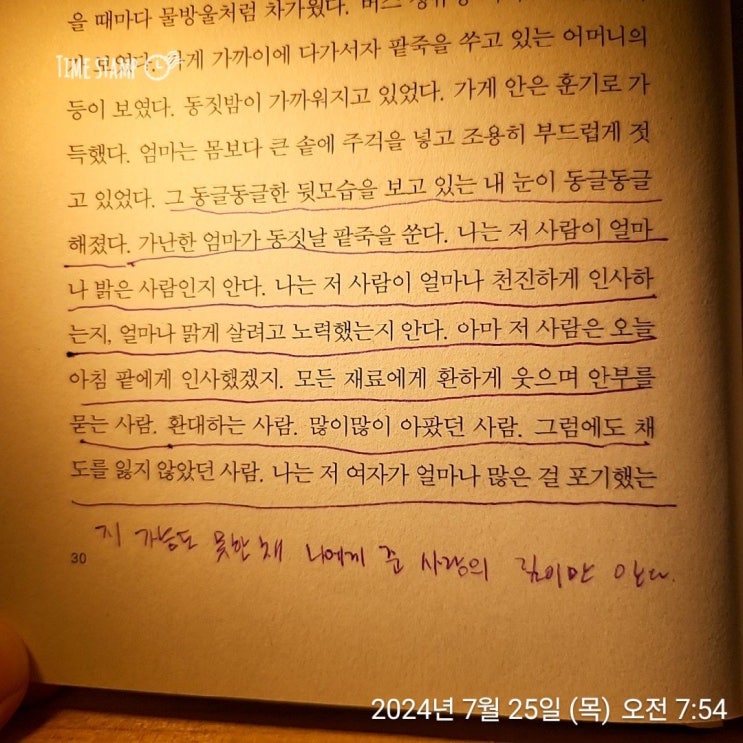 을 때마다 물방울처럼 차가웠다. 버스 정류장
가 보였다. 가게 가까이에 다가서자 팥죽을 쑤고 있는 어머니의
TIME STAMP
등이 보였다. 동짓밤이 가까워지고 있었다. 가게 안은 훈기로 가
득했다. 엄마는 몸보다 큰 솥에 주걱을 넣고 조용히 부드럽게 젓
고 있었다. 그 동글동글한 뒷모습을 보고 있는 내 눈이 동글동글
해졌다. 가난한 엄마가 동짓날 팥죽을 쑨다. 나는 저 사람이 얼마
나 밝은 사람인지 안다. 나는 저 사람이 얼마나 천진하게 인사하
는지, 얼마나 맑게 살려고 노력했는지 안다. 아마 저 사람은 오늘
아침 팥에게 인사했겠지. 모든 재료에게 환하게 웃으며 안부를
묻는 사람. 환대하는 사람. 많이많이 아팠던 사람. 그럼에도 채
도를 잃지 않았던 사람. 나는 저 여자가 얼마나 많은 걸 포기했는
지 가늠도 못한 채 나에게 준 사랑의 깊이만 안다.
30
2024년 7월 25일 (목) 오전 7:54